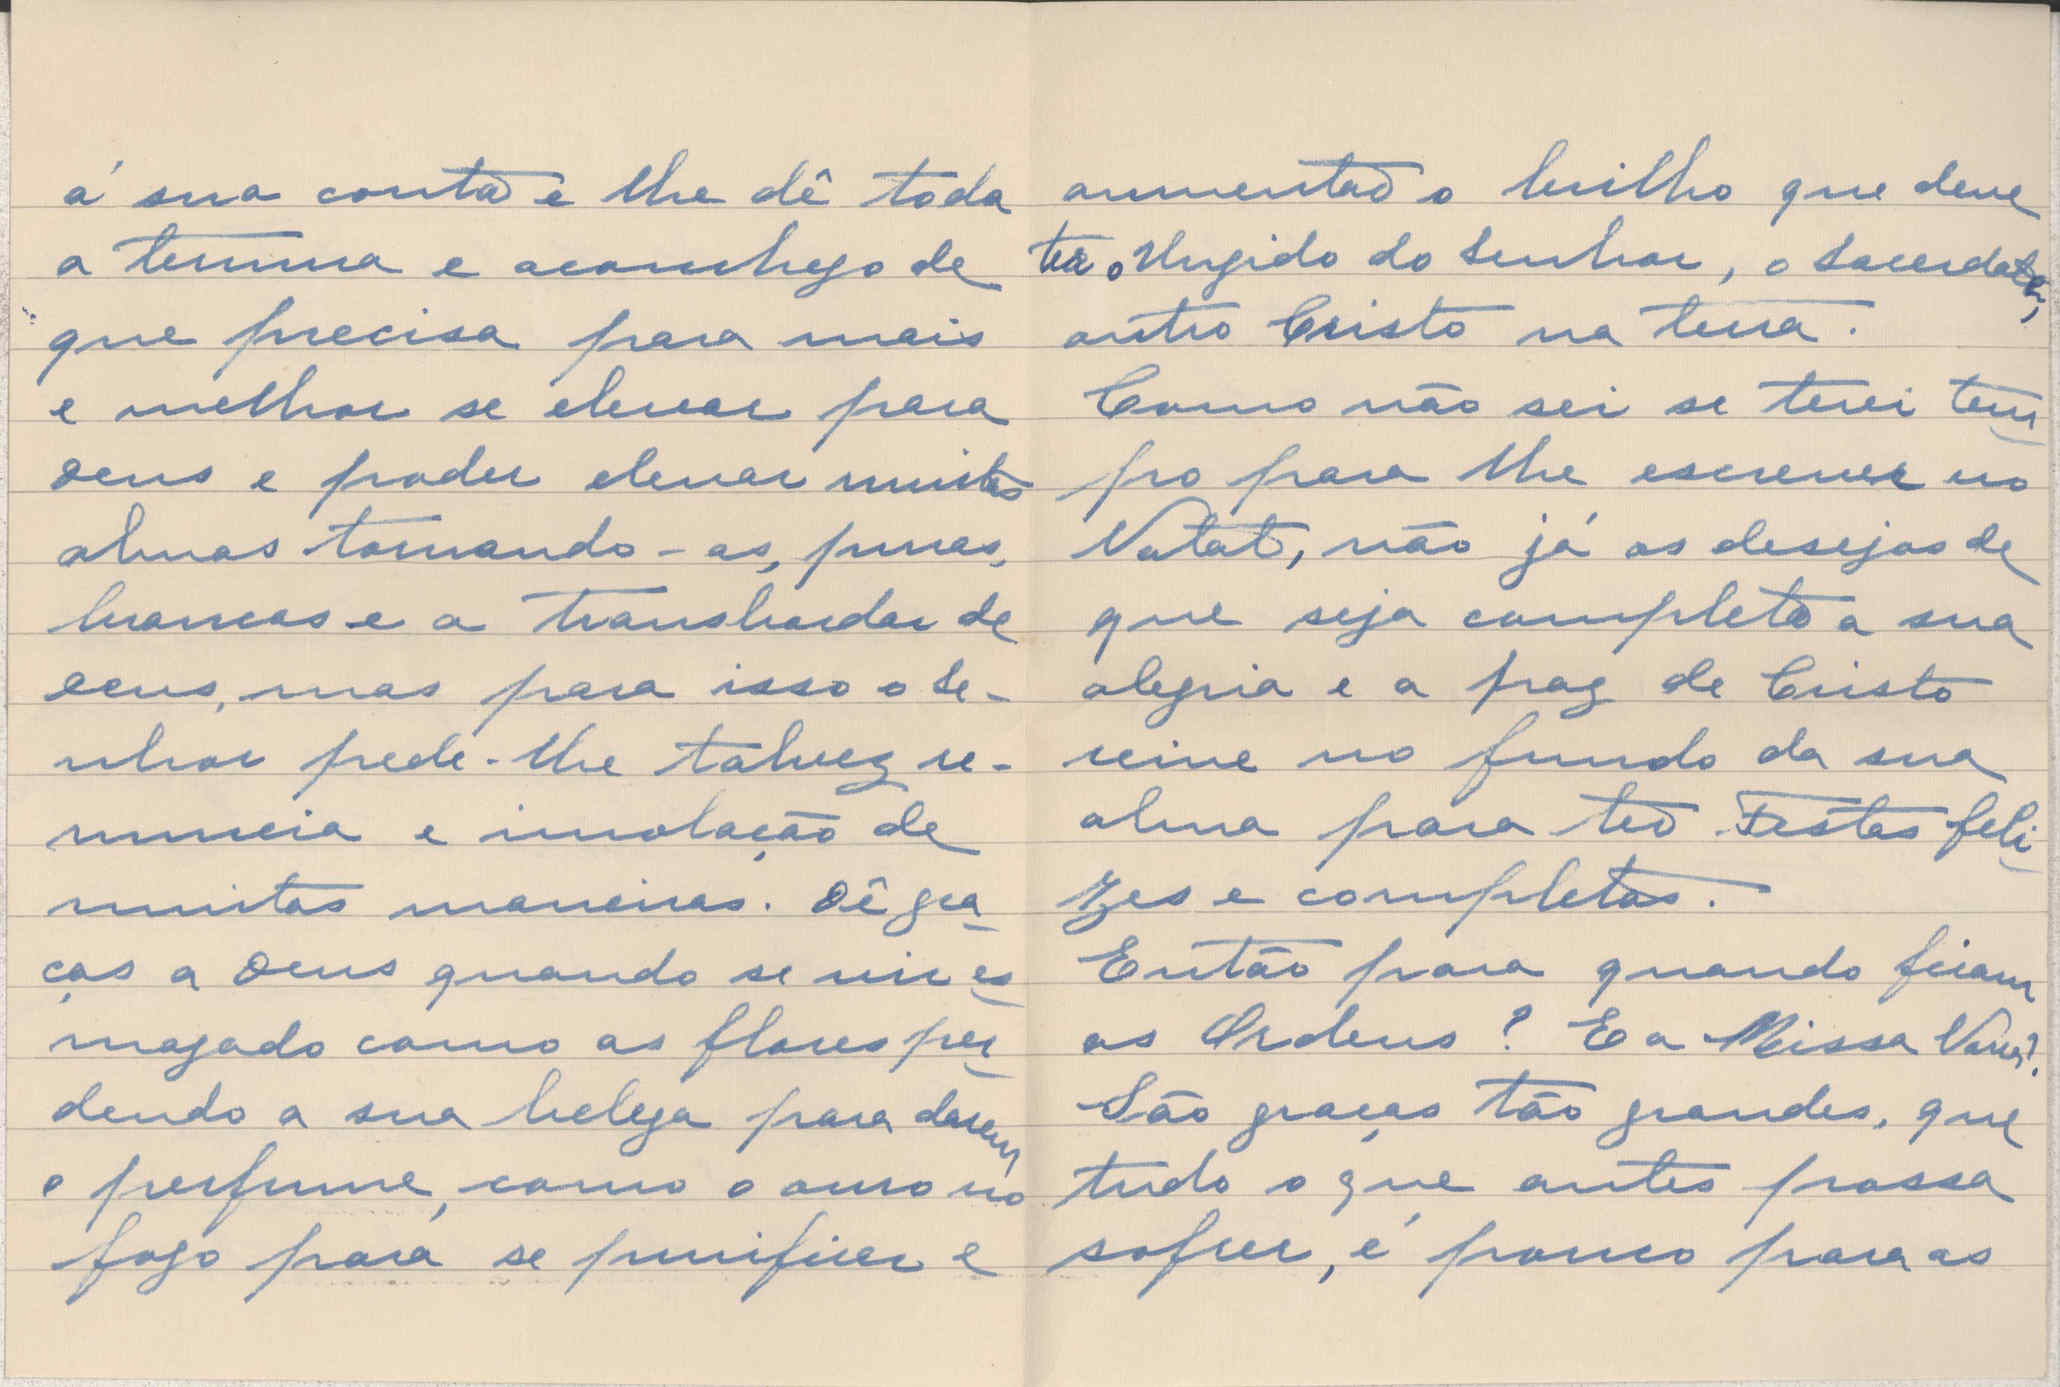 á sua conta e lhe dê toda
a ternura e aconchego de
que precisa para mais
e melhor se elevar para
Deus e poder elevar muitas
almas tornando-as, puras,
brancas e a transbordar de
Deus, mas para isso o Se-
nhor pede-lhe talvez re-
nuncia e imolação de
muitas maneiras. Dê gra
ças a Deus quando se vir es
magado como as flores per
dendo a sua beleza para darem
o perfume, como o ouro no
fogo para se purificar e
aumentar o brilho que deve
ter o Ungido do Senhor, o Sacerdote,
outro Cristo na terra.
Como não sei se terei tem
po para lhe escrever no
Natal, vão já os desejos de
que seja completa a sua
alegria e a paz de Cristo
reine no fundo da sua
alma para ter Festas feli
zes e completas.
Então para quando ficam
as Ordens? E a Missa Nova?
São graças tão grandes, que
tudo o que antes possa
sofrer, é pouco para as